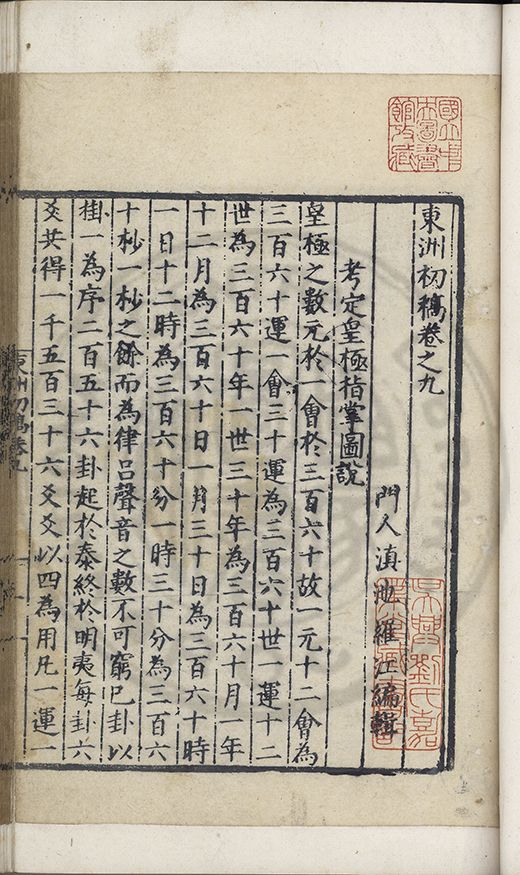 東洲初稿卷之九
門人滇池羅江編輯
考定皇極指掌圖說
皇極之數元於一會於三百六十故一元十二會為
三百六十運一會三十運為三百六十世一運十二
世為三百六十年一世三十年為三百六十月一年
十二月為三百六十日一月三十日為三百六十時
一日十二時為三百六十分一時三十分為三百六
十杪一杪之餘而為律呂聲音之數不可窮已卦以
掛一為序二百五十六卦起於泰終於明夷每卦六
爻共得一千五百三十六爻爻以四為用凡一運一
東洲初稿卷九
國立中央圖書館收藏
吳興劉氏嘉業堂藏書